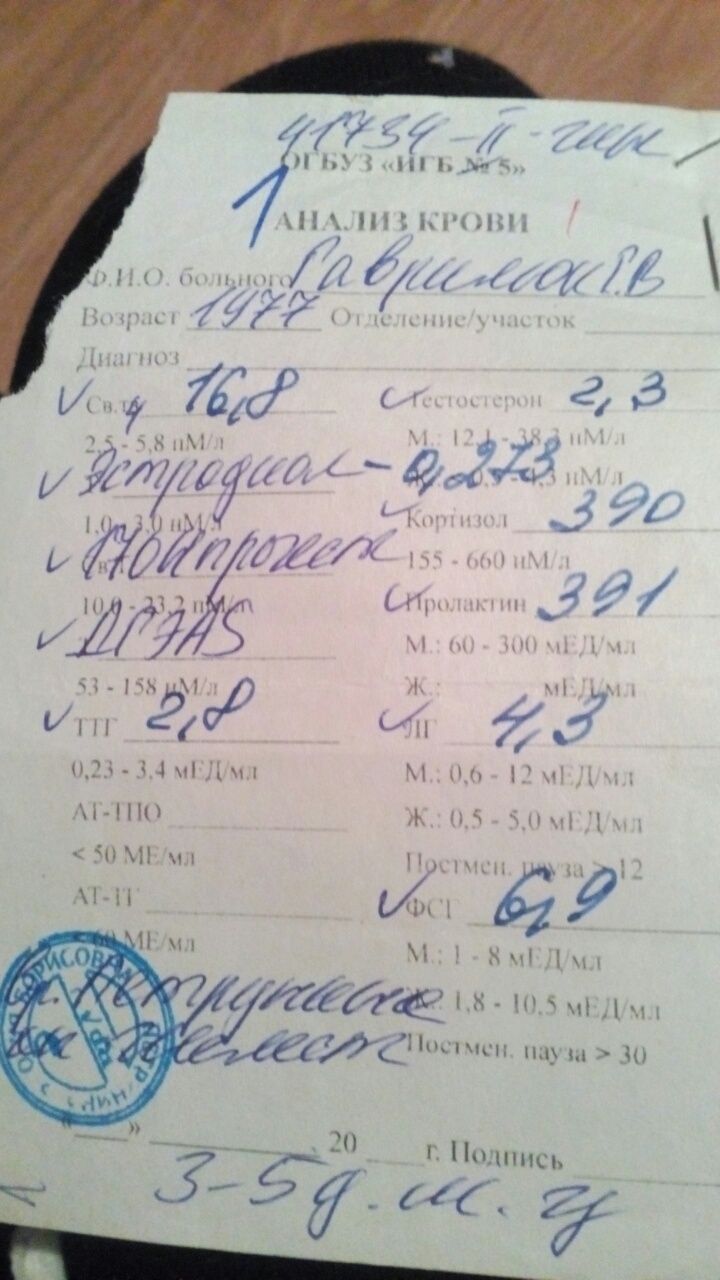 41734-II-
ОГБУЗ «ИГБ № 5»
1
АНАЛИЗ КРОВИ
Ф.И.О. больного Г.В
Возраст 1977 Отделение/участок
Диагноз
Св.т4 16,8
2,5 - 5,8 пМ/л
Эстрадиол - 0,273
1,0 - 3,0 нМ/л
17ОН прогест
10,0 - 23,2 пМ/л
ДГЭАS
53 - 158 нМ/л
ТТГ 2,8
0,23 - 3,4 мЕД/мл
АТ-ТПО
< 50 МЕ/мл
АТ-ТГ
< 60 МЕ/мл
Тестостерон 2,3
М.: 12,1 - 38,3 нМ/л
нМ/л
Кортизол 390
155 - 660 нМ/л
Пролактин 391
М.: 60 - 300 мЕД/мл
Ж.: мЕД/мл
ЛГ 4,3
М.: 0,6 - 12 мЕД/мл
Ж.: 0,5 - 5,0 мЕД/мл
Постмен. пауза > 12
ФСГ 6,9
М.: 1 - 8 мЕД/мл
Ж.: 1,8 - 10,5 мЕД/мл
Постмен. пауза > 30
«___» ______ 20 ___ г. Подпись
3-5 д.м.ц